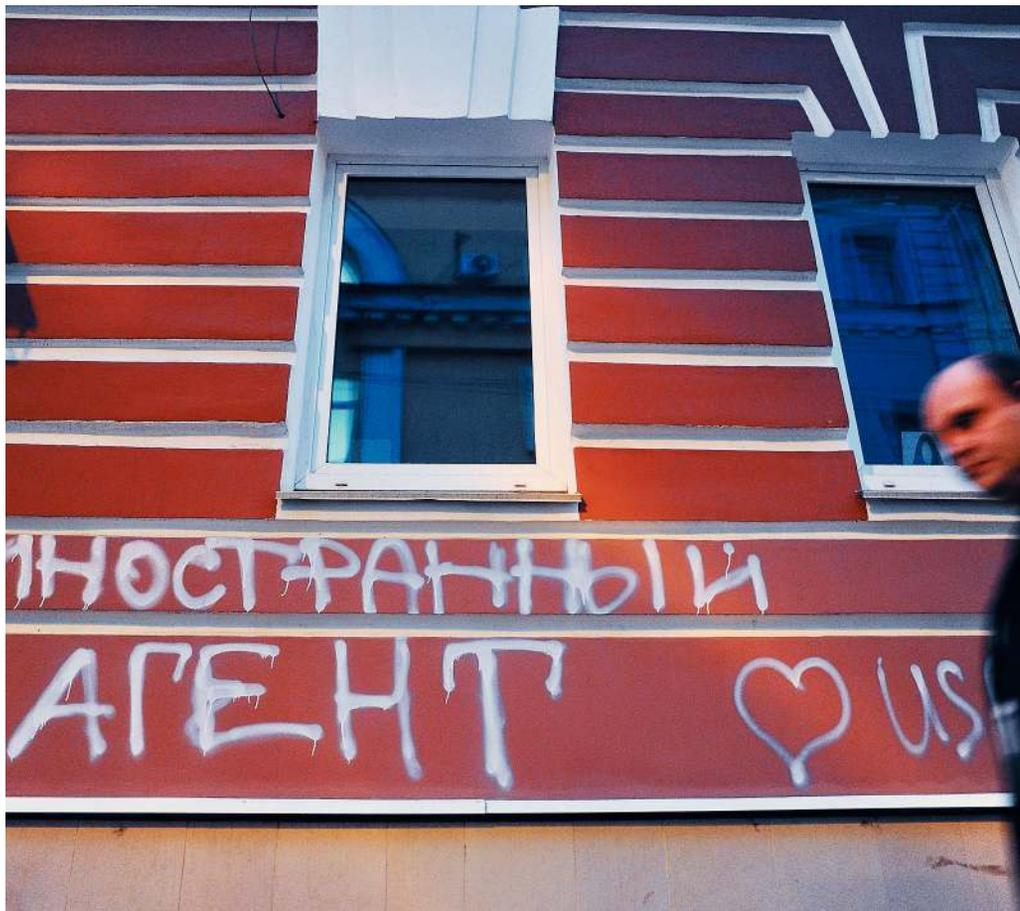 ИНОСТРАННЫЙ
АГЕНТ ♡ US